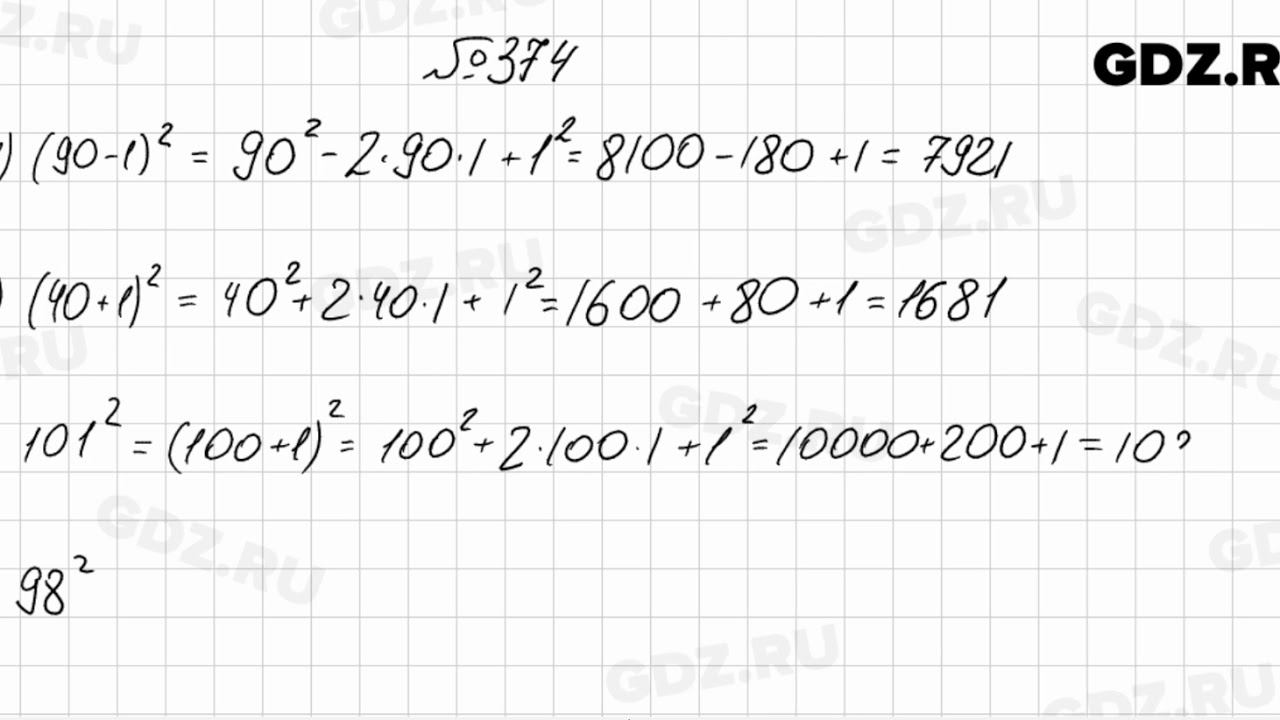 №374
GDZ.R
) (90-1)² = 90² - 2·90·1 + 1² = 8100 - 180 + 1 = 7921
) (40+1)² = 40² + 2·40·1 + 1² = 1600 + 80 + 1 = 1681
101² = (100+1)² = 100² + 2·100·1 + 1² = 10000 + 200 + 1 = 10
98²